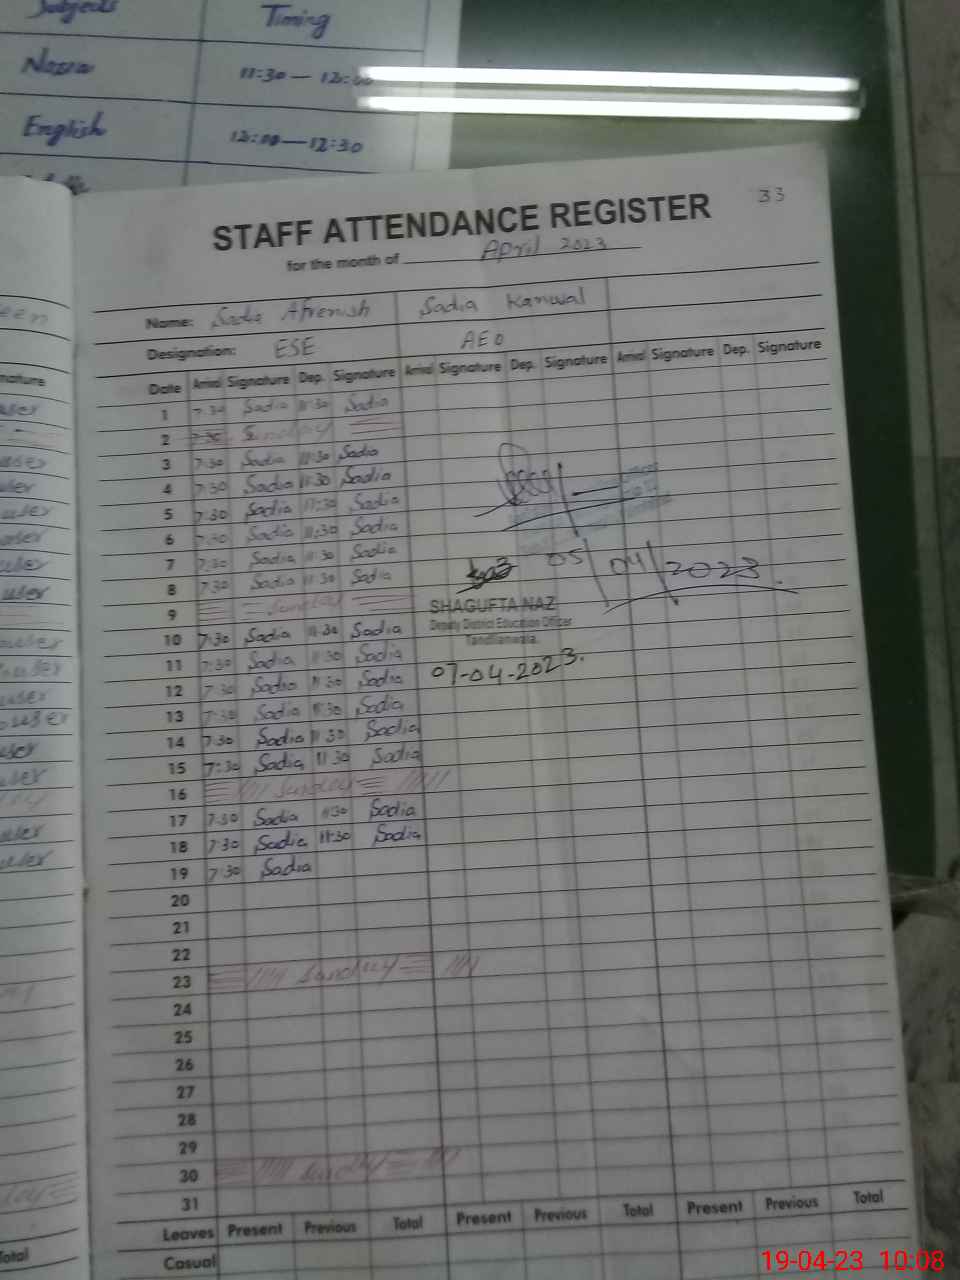 Subjects Timing
Nazra 11:30 — 12:00
English 12:00—12:30
33
STAFF ATTENDANCE REGISTER
for the month of April 2023
Name: Sadia Afrenish Sadia Kanwal
Designation: ESE AEO
Date Arrival Signature Dep. Signature Arrival Signature Dep. Signature Arrival Signature Dep. Signature
1 7:30 Sadia 11:30 Sadia
2 7:30 Sunday
3 7:30 Sadia 11:30 Sadia
4 7:30 Sadia 11:30 Sadia
5 7:30 Sadia 11:30 Sadia
6 7:30 Sadia 11:30 Sadia
7 7:30 Sadia 11:30 Sadia
8 7:30 Sadia 11:30 Sadia
9 Sunday
10 7:30 Sadia 11:30 Sadia
11 7:30 Sadia 11:30 Sadia
12 7:30 Sadia 11:30 Sadia
13 7:30 Sadia 11:30 Sadia
14 7:30 Sadia 11:30 Sadia
15 7:30 Sadia 11:30 Sadia
16 Sunday
17 7:30 Sadia 11:30 Sadia
18 7:30 Sadia 11:30 Sadia
19 7:30 Sadia
20
21
22
23 Sunday
24
25
26
27
28
29
30 Sunday
31
05/04/2023
SHAGUFTA NAZ
Deputy District Education Officer
Tandlianwala.
07-04-2023.
Leaves Present Previous Total Present Previous Total Present Previous Total
Casual
19-04-23 10:08